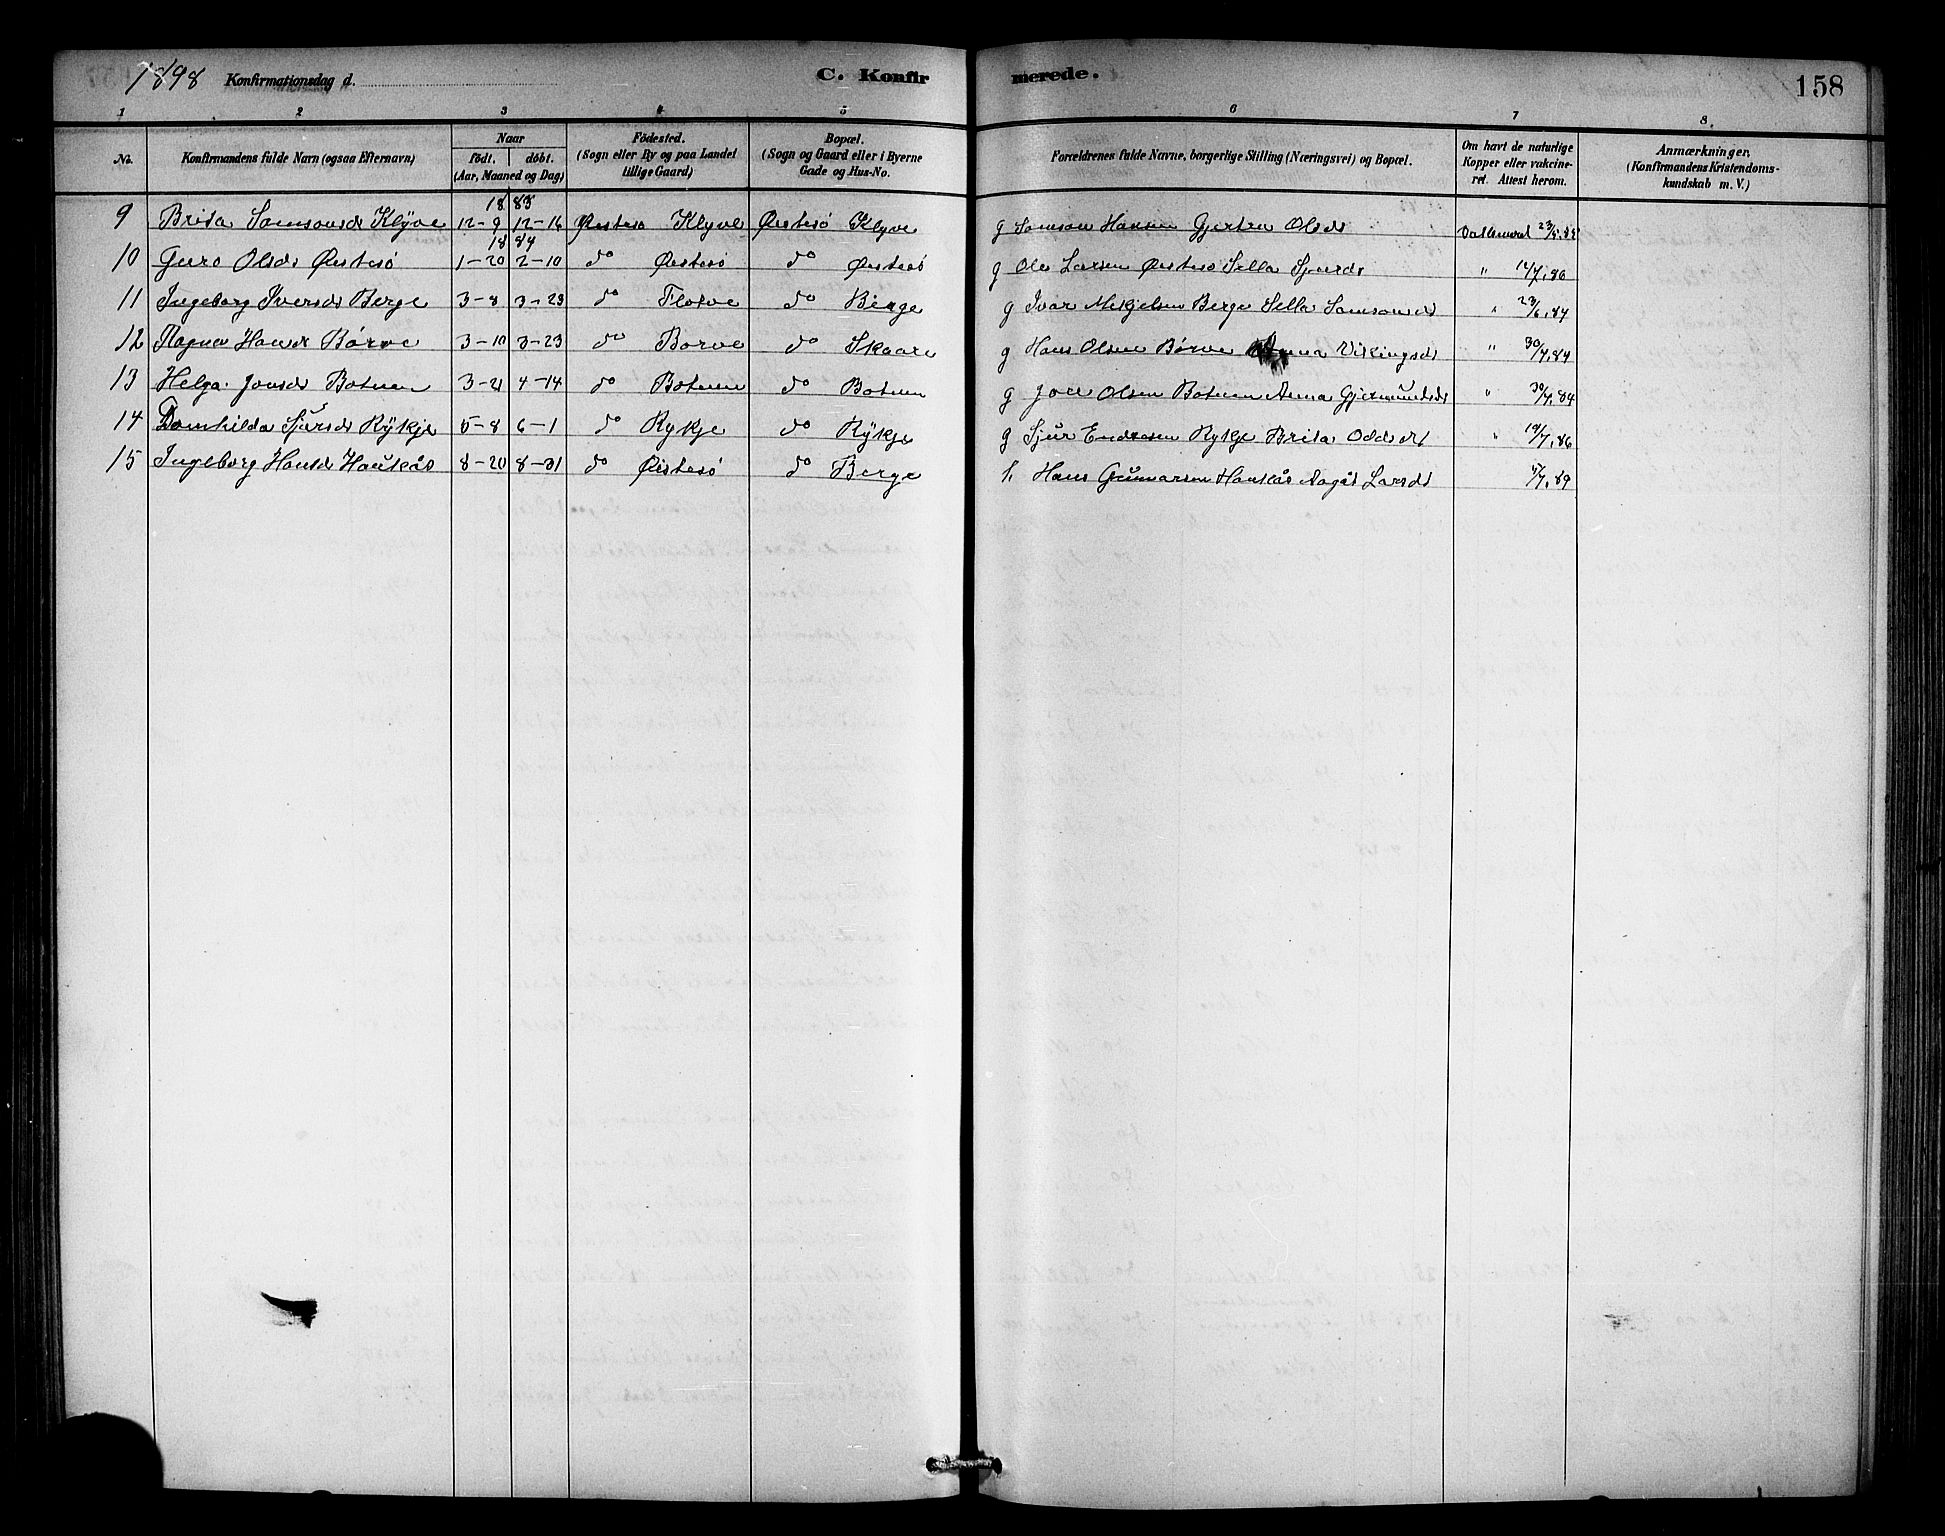 1898 Konfirmationsdag d. C. Konfirmerede. 158
1 2 3 4 5 6 7 8.
No. Konfirmandens fulde Navn (ogsaa Efternavn) Naar født. døbt. (Aar, Maaned og Dag) Födested. (Sogn eller By og paa Landet tillige Gaard) Bopæl. (Sogn og Gaard eller i Byerne Gade og Hus-No. Forældrenes fulde Navne, borgerlige Stilling (Næringsvei) og Bopæl. Om havt de naturlige Kopper eller vakcineret. Attest herom. Anmærkninger, (Konfirmandens Kristendomskundskab m. V.)
1883
9 Brita Samsonsd Klyve 12-9 12-16 Østesø Klyve Østesø Klyve g Samson Hansen Gjertru Olsd
1884
10 Guro Olsd Østesø 1-20 2-10 do Østesø do Østesø g Ole Larsen Østesø Sella Sjursd " 14/7.86
11 Ingeborg Iversd Berge 3-8 3-23 do Flotve do Berge g Ivar Mekjelsen Berge Sella Samsonsd " 23/6.84
12 Ragna Hansd Børve 3-10 3-23 do Borve do Skaare g Hans Olsen Børve Anna Vikingsd " 30/7.84
13 Helga Jonsd Botnen 3-21 4-14 do Botnen do Botnen g Jon Olsen Botnen Anna Gjermundsd " 30/7.84
14 Domhilda Sjursd Rykje 5-8 6-1 do Rykje do Rykje g Sjur Endresen Rykje Brita Oddsd " 14/7.86
15 Ingeborg Hansd Haukås 8-20 8-31 do Østesø do Berge Hans Gunnarsen Haukås Aagåt Larsd